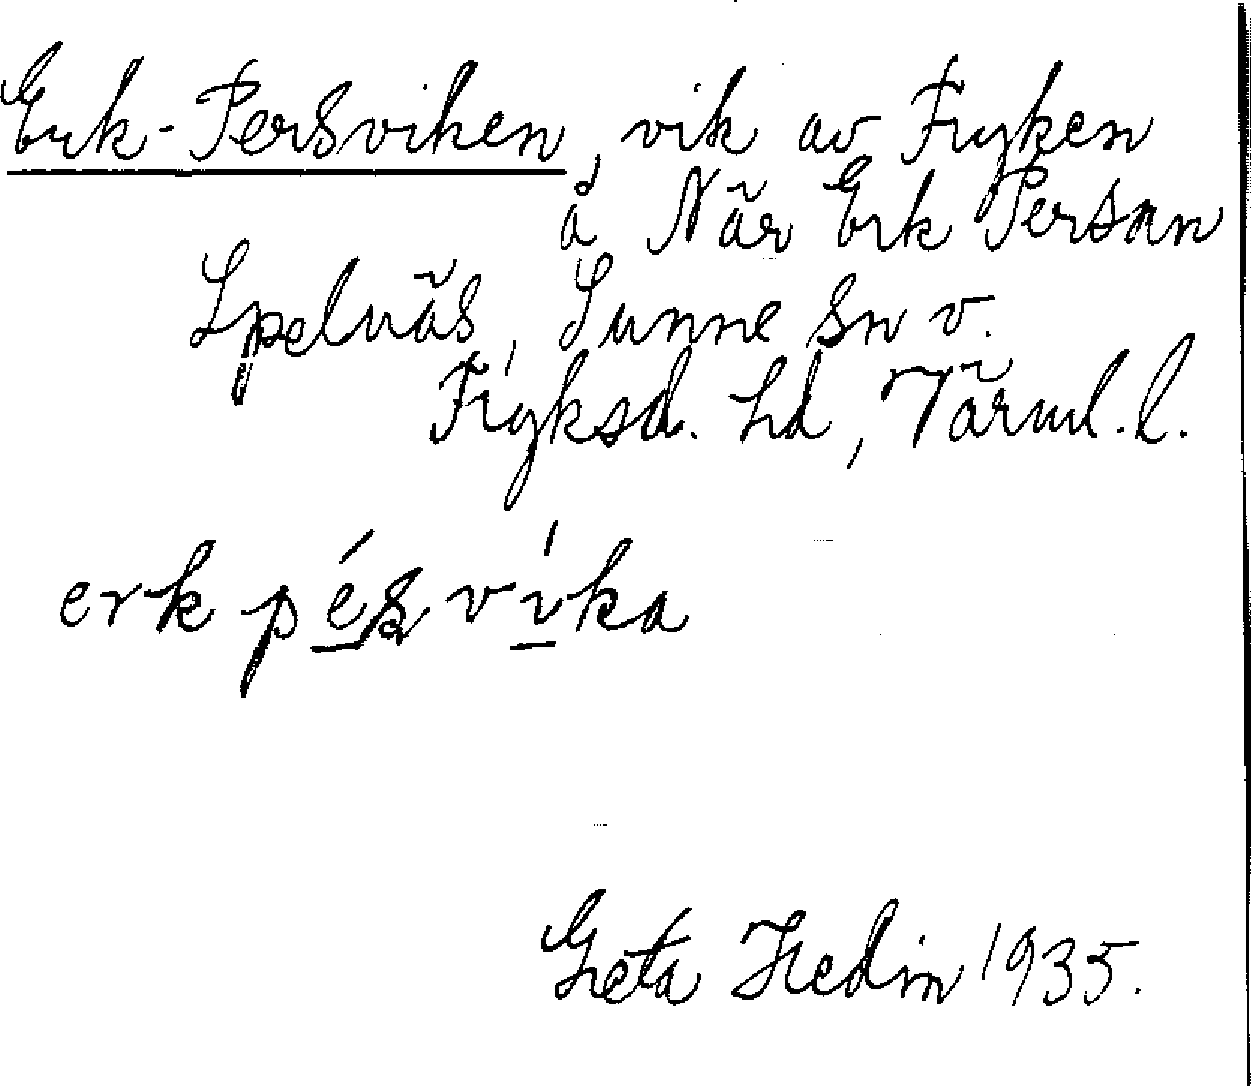 Erk-Persviken, vik av Fryken
å När Erk Persan
Spelnäs, Sunne sn v.
Fryksd. hd, Värml. l.
erk pésvíka
Greta Hedin 1935.